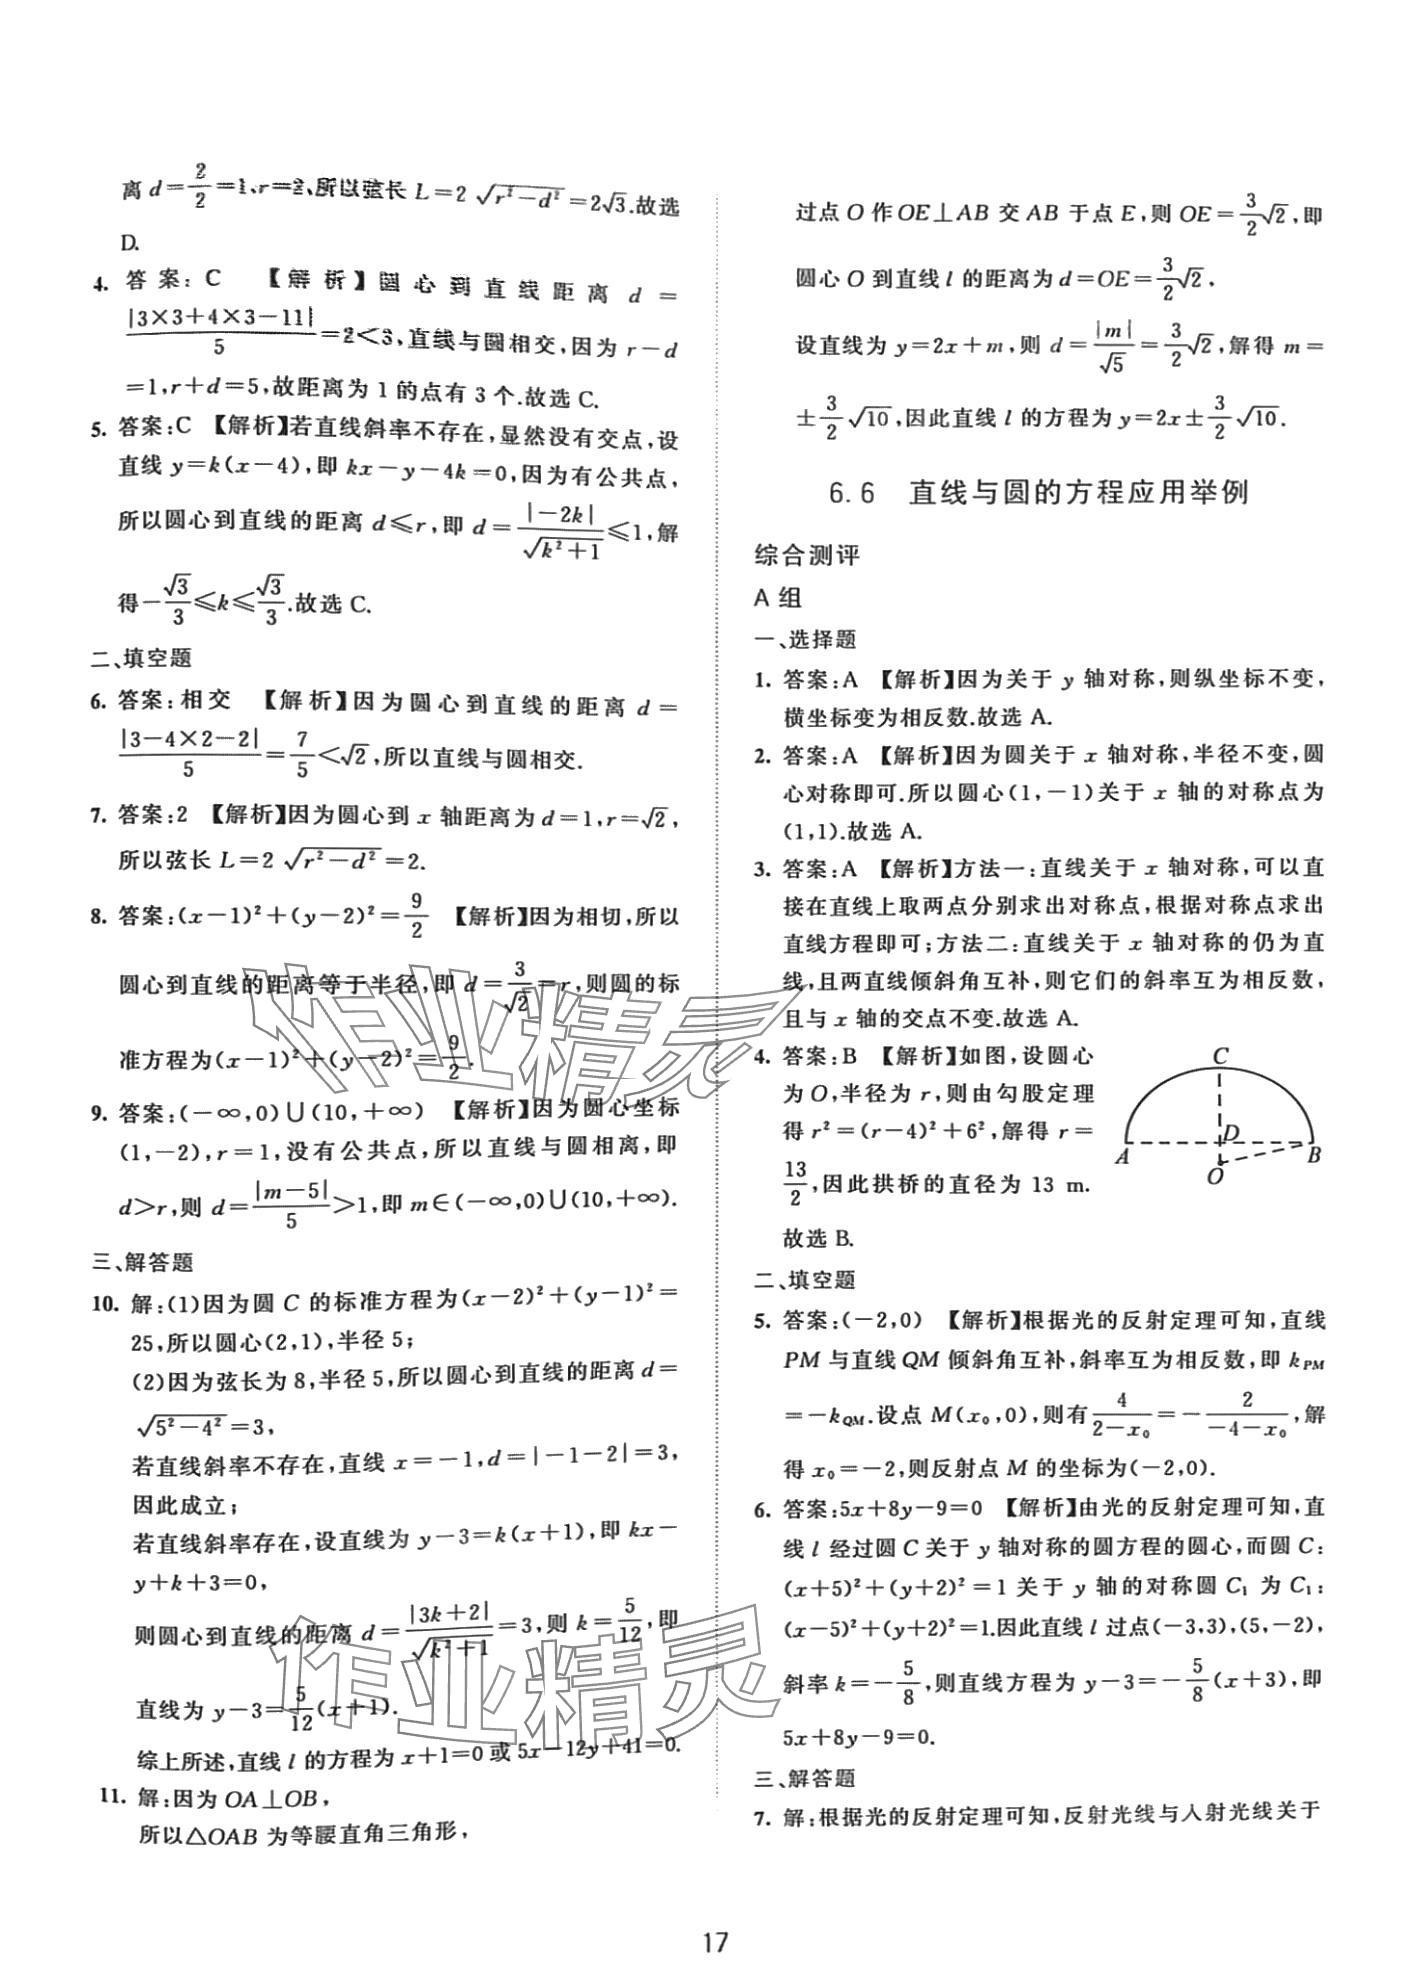 离 d=2/2=1,r=2,所以弦长 L=2√(r²-d²)=2√3.故选
D.
4. 答案:C 【解析】圆心到直线距离 d=
|3×3+4×3-11|/5=2<3,直线与圆相交,因为 r-d
=1,r+d=5,故距离为 1 的点有 3 个.故选 C.
5. 答案:C 【解析】若直线斜率不存在,显然没有交点,设
直线 y=k(x-4),即 kx-y-4k=0,因为有公共点,
所以圆心到直线的距离 d≤r,即 d=|-2k|/√(k²+1)≤1,解
得-√3/3≤k≤√3/3.故选 C.
二、填空题
6. 答案:相交 【解析】因为圆心到直线的距离 d=
|3-4×2-2|/5=7/5<√2,所以直线与圆相交.
7. 答案:2 【解析】因为圆心到 x 轴距离为 d=1,r=√2,
所以弦长 L=2√(r²-d²)=2.
8. 答案:(x-1)²+(y-2)²=9/2 【解析】因为相切,所以
圆心到直线的距离等于半径,即 d=3/√2=r,则圆的标
准方程为(x-1)²+(y-2)²=9/2.
9. 答案:(-∞,0)∪(10,+∞) 【解析】因为圆心坐标
(1,-2),r=1,没有公共点,所以直线与圆相离,即
d>r,则 d=|m-5|/5>1,即 m∈(-∞,0)∪(10,+∞).
三、解答题
10. 解:(1)因为圆 C 的标准方程为(x-2)²+(y-1)²=
25,所以圆心(2,1),半径 5;
(2)因为弦长为 8,半径 5,所以圆心到直线的距离 d=
√(5²-4²)=3,
若直线斜率不存在,直线 x=-1,d=|-1-2|=3,
因此成立;
若直线斜率存在,设直线为 y-3=k(x+1),即 kx-
y+k+3=0,
则圆心到直线的距离 d=|3k+2|/√(k²+1)=3,则 k=5/12,即
直线为 y-3=5/12(x+1).
综上所述,直线 l 的方程为 x+1=0 或 5x-12y+41=0.
11. 解:因为 OA⊥OB,
所以△OAB 为等腰直角三角形,
过点 O 作 OE⊥AB 交 AB 于点 E,则 OE=3/2√2,即
圆心 O 到直线 l 的距离为 d=OE=3/2√2,
设直线为 y=2x+m,则 d=|m|/√5=3/2√2,解得 m=
±3/2√10,因此直线 l 的方程为 y=2x±3/2√10.
6.6 直线与圆的方程应用举例
综合测评
A 组
一、选择题
1. 答案:A 【解析】因为关于 y 轴对称,则纵坐标不变,
横坐标变为相反数.故选 A.
2. 答案:A 【解析】因为圆关于 x 轴对称,半径不变,圆
心对称即可.所以圆心(1,-1)关于 x 轴的对称点为
(1,1).故选 A.
3. 答案:A 【解析】方法一:直线关于 x 轴对称,可以直
接在直线上取两点分别求出对称点,根据对称点求出
直线方程即可;方法二:直线关于 x 轴对称的仍为直
线,且两直线倾斜角互补,则它们的斜率互为相反数,
且与 x 轴的交点不变.故选 A.
4. 答案:B 【解析】如图,设圆心
为 O,半径为 r,则由勾股定理
得 r²=(r-4)²+6²,解得 r=
13/2,因此拱桥的直径为 13 m.
故选 B.
C
D
A
B
O
二、填空题
5. 答案:(-2,0) 【解析】根据光的反射定理可知,直线
PM 与直线 QM 倾斜角互补,斜率互为相反数,即 k_PM
=-k_QM.设点 M(x₀,0),则有4/(2-x₀)=-2/(-4-x₀),解
得 x₀=-2,则反射点 M 的坐标为(-2,0).
6. 答案:5x+8y-9=0 【解析】由光的反射定理可知,直
线 l 经过圆 C 关于 y 轴对称的圆方程的圆心,而圆 C:
(x+5)²+(y+2)²=1 关于 y 轴的对称圆 C₁ 为 C₁:
(x-5)²+(y+2)²=1.因此直线 l 过点(-3,3),(5,-2),
斜率 k=-5/8,则直线方程为 y-3=-5/8(x+3),即
5x+8y-9=0.
三、解答题
7. 解:根据光的反射定理可知,反射光线与入射光线关于
17
作业精灵
作业精灵